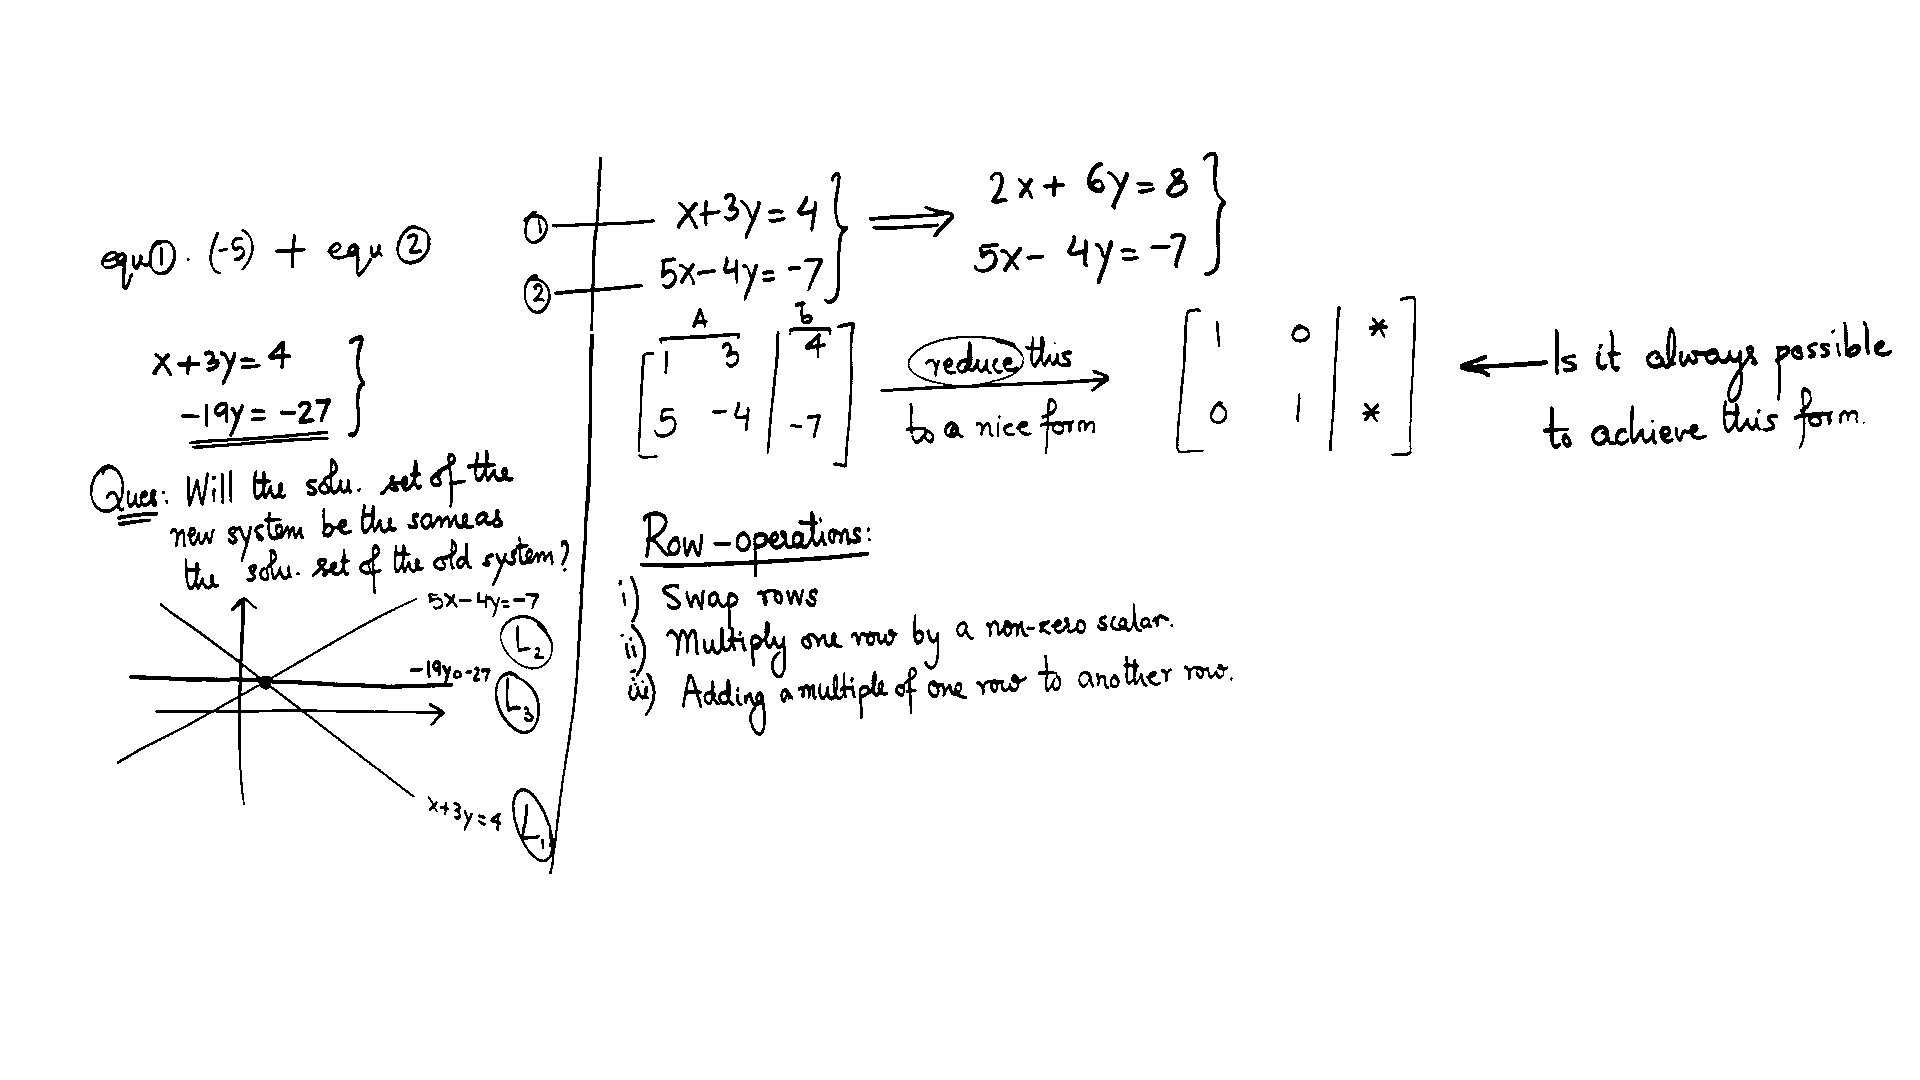 equ ① · (-5) + equ ②
x+3y=4
-19y = -27
Ques: Will the solu. set of the
new system be the same as
the solu. set of the old system?
5x-4y=-7
L₂
-19y=-27
L₃
x+3y=4
L₁
① x+3y=4 ⟹ 2x+6y=8
② 5x-4y=-7 5x-4y=-7
A b
1 3 | 4
5 -4 | -7
reduce this
to a nice form
1 0 | *
0 1 | *
Is it always possible
to achieve this form.
Row-operations:
i) Swap rows
ii) Multiply one row by a non-zero scalar.
iii) Adding a multiple of one row to another row.